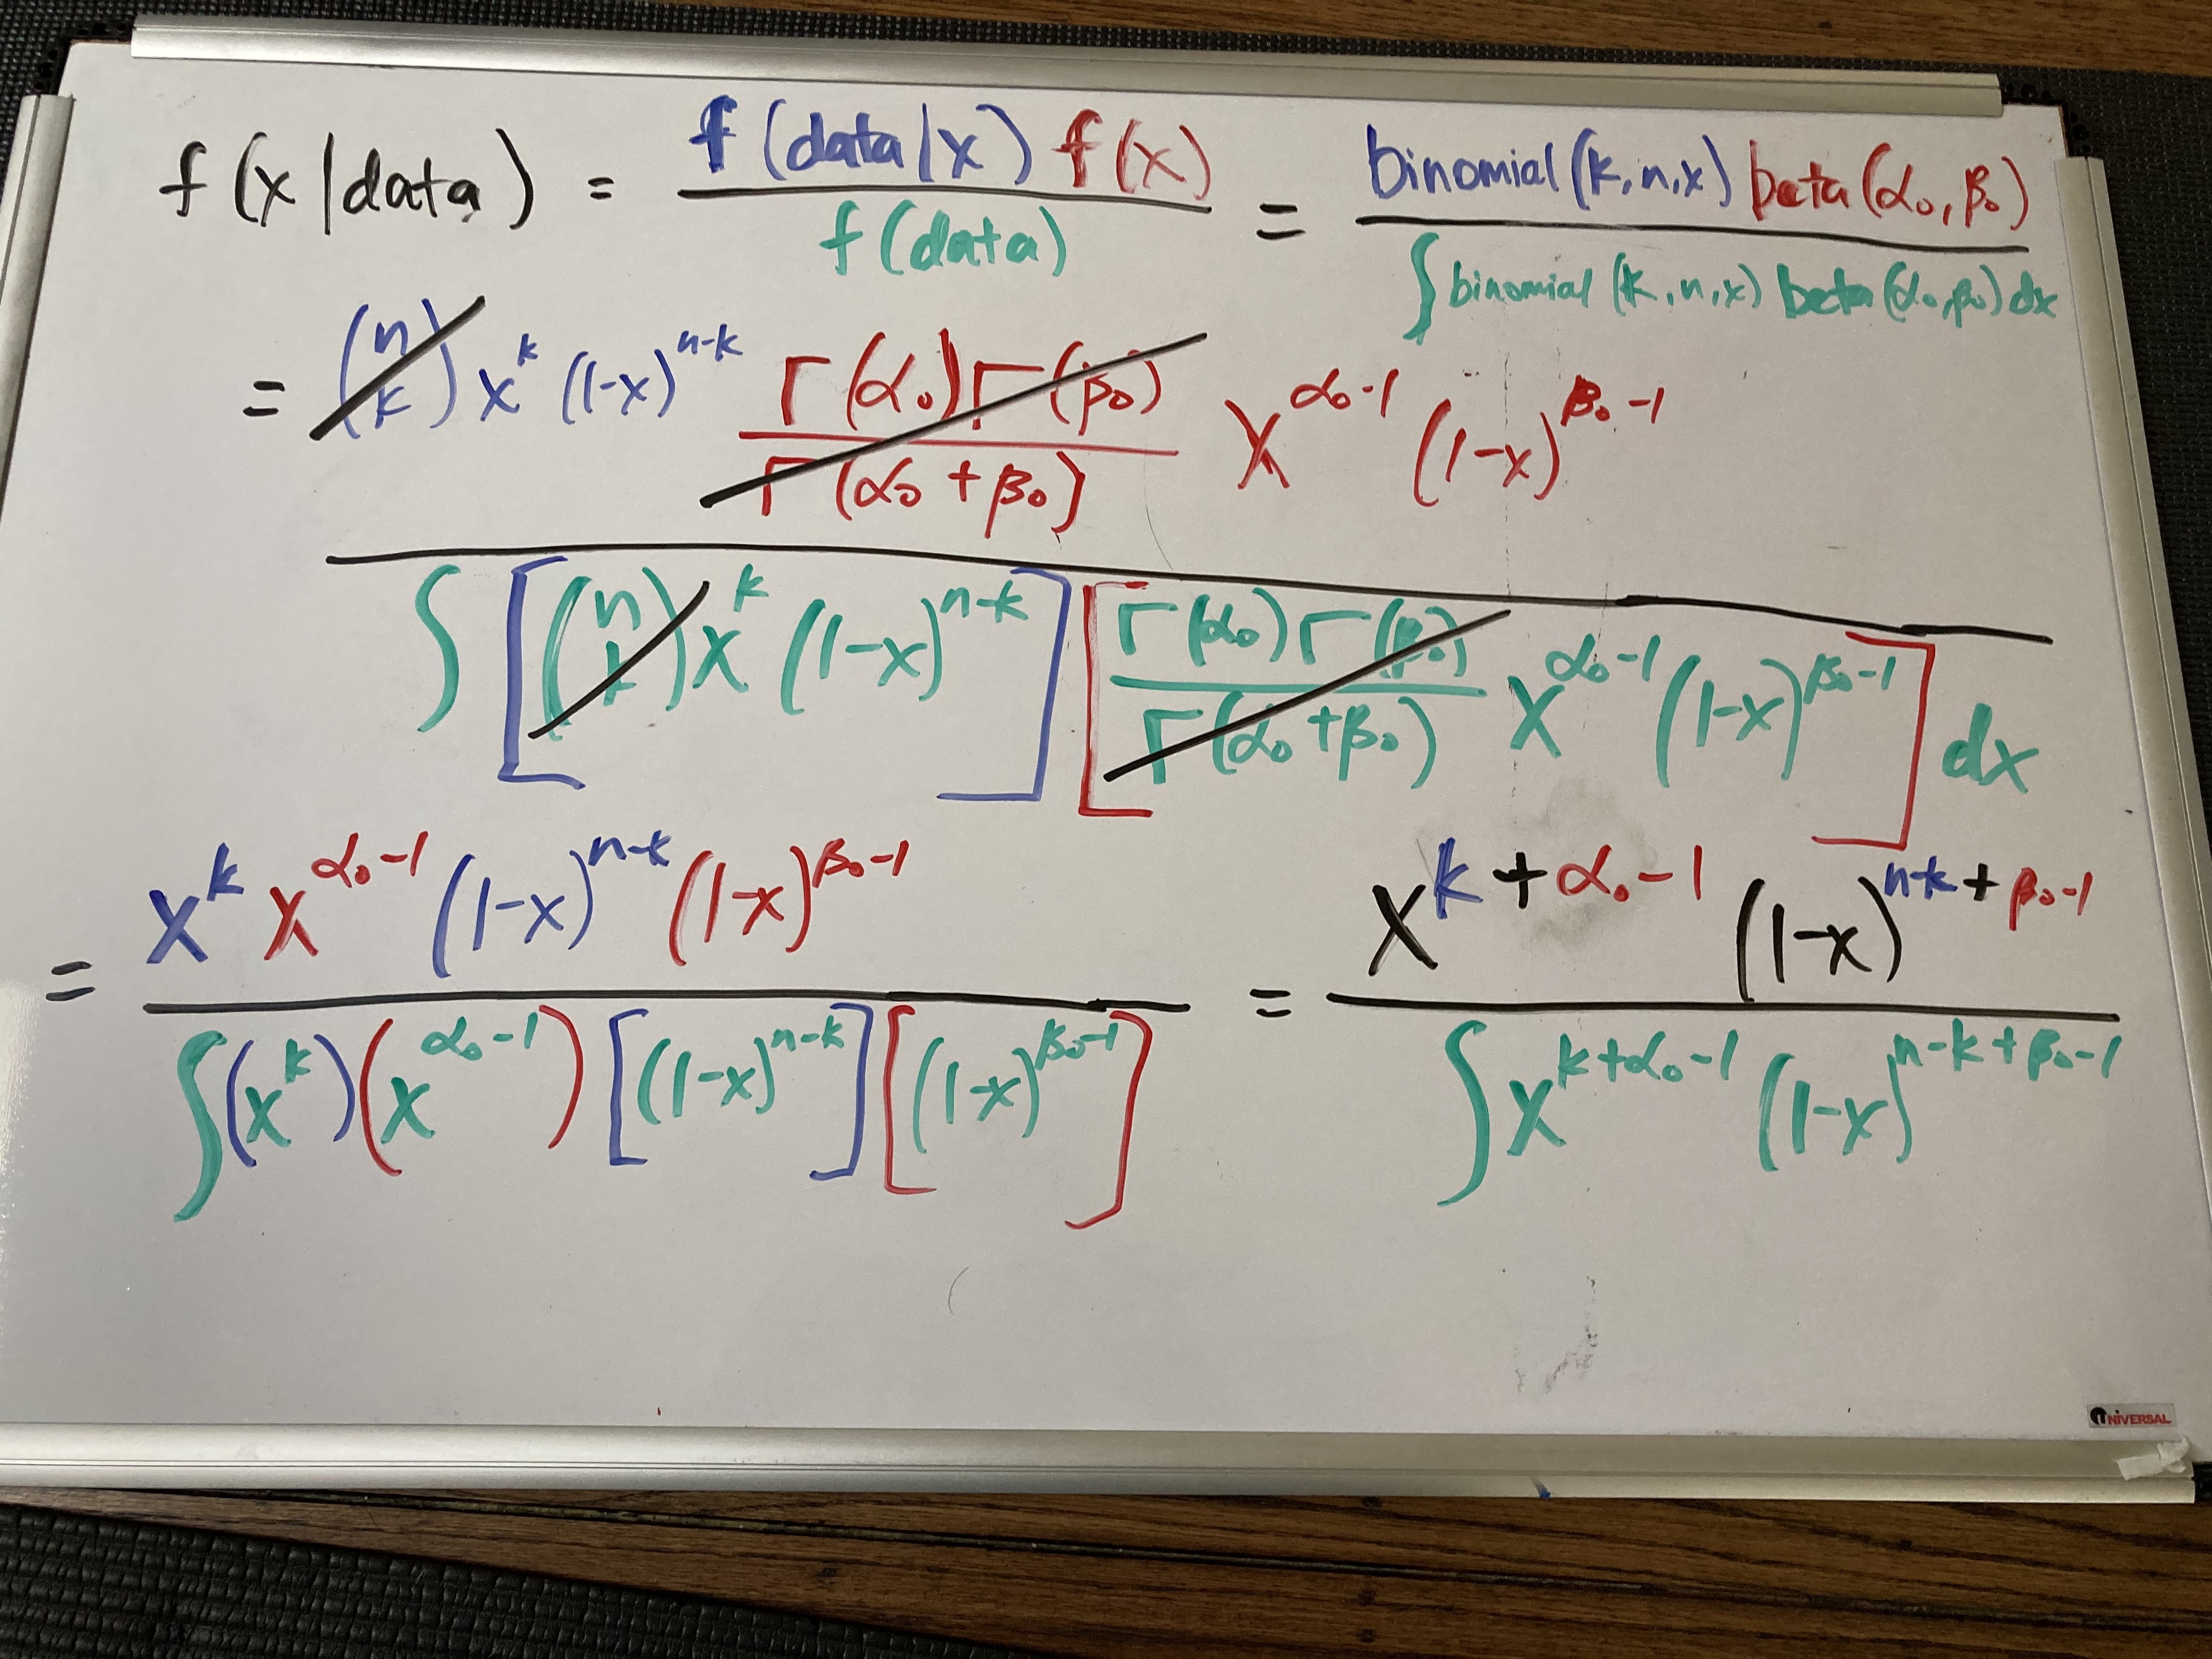 f(x|data) = f(data|x) f(x) / f(data) = binomial(k,n,x) beta(α₀,β₀) / ∫ binomial(k,n,x) beta(α₀,β₀) dx
= (n k) x^k (1-x)^(n-k) Γ(α₀)Γ(β₀) / Γ(α₀+β₀) x^(α₀-1) (1-x)^(β₀-1)
∫ [(n k) x^k (1-x)^(n-k)] [Γ(α₀)Γ(β₀) / Γ(α₀+β₀) x^(α₀-1) (1-x)^(β₀-1)] dx
= x^k x^(α₀-1) (1-x)^(n-k) (1-x)^(β₀-1) / ∫(x^k)(x^(α₀-1)) [(1-x)^(n-k)] [(1-x)^(β₀-1)] = x^(k+α₀-1) (1-x)^(n-k+β₀-1) / ∫ x^(k+α₀-1) (1-x)^(n-k+β₀-1)
UNIVERSAL